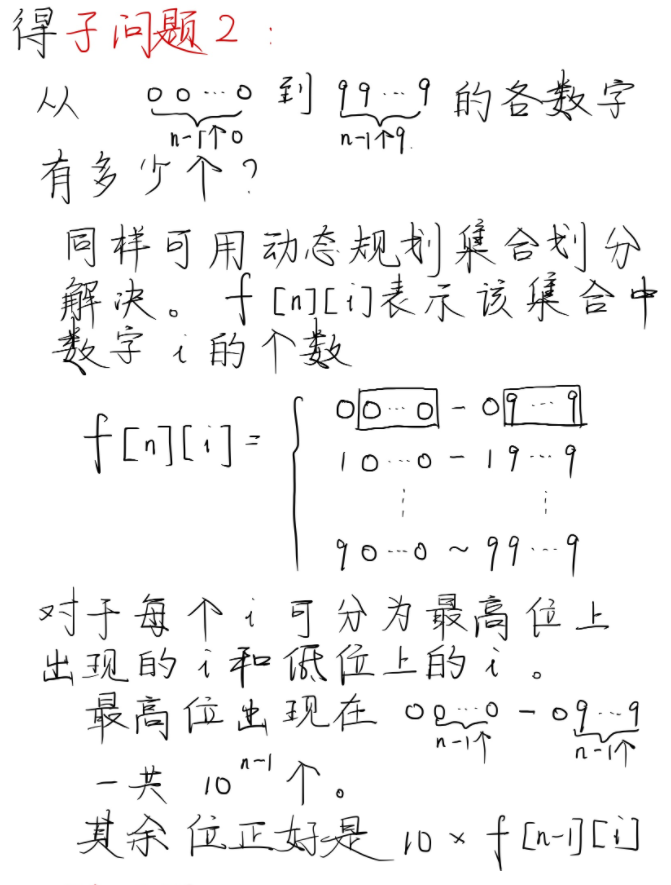 得子问题2：
从 00…0 到 99…9 的各数字
n-1个0 n-1个9
有多少个？
同样可用动态规划集合划分
解决。f[n][i]表示该集合中
数字i的个数
00…0 - 09…9
f[n][i]= 10…0 - 19…9
⋮ ⋮
90…0 ~ 99…9
对于每个i可分为最高位上
出现的i和低位上的i。
最高位出现在 00…0 - 09…9
n-1个 n-1个
一共 10^{n-1} 个。
其余位正好是 10 × f[n-1][i]